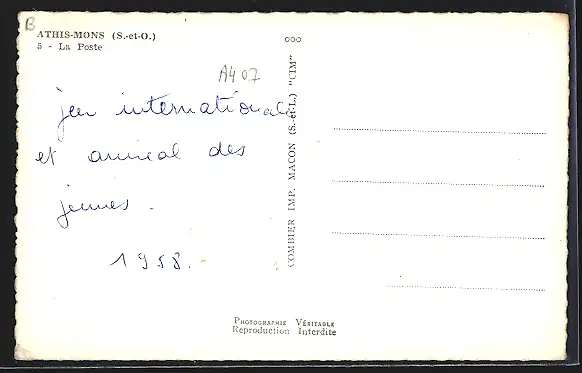 B
ATHIS-MONS (S.-et-O.)
5 - La Poste
A407
jeu internationale
et amical des
jeunes.
1958.
COMBIER IMP. MACON (S.-et-L.) "CIM"
PHOTOGRAPHIE VÉRITABLE
Reproduction Interdite